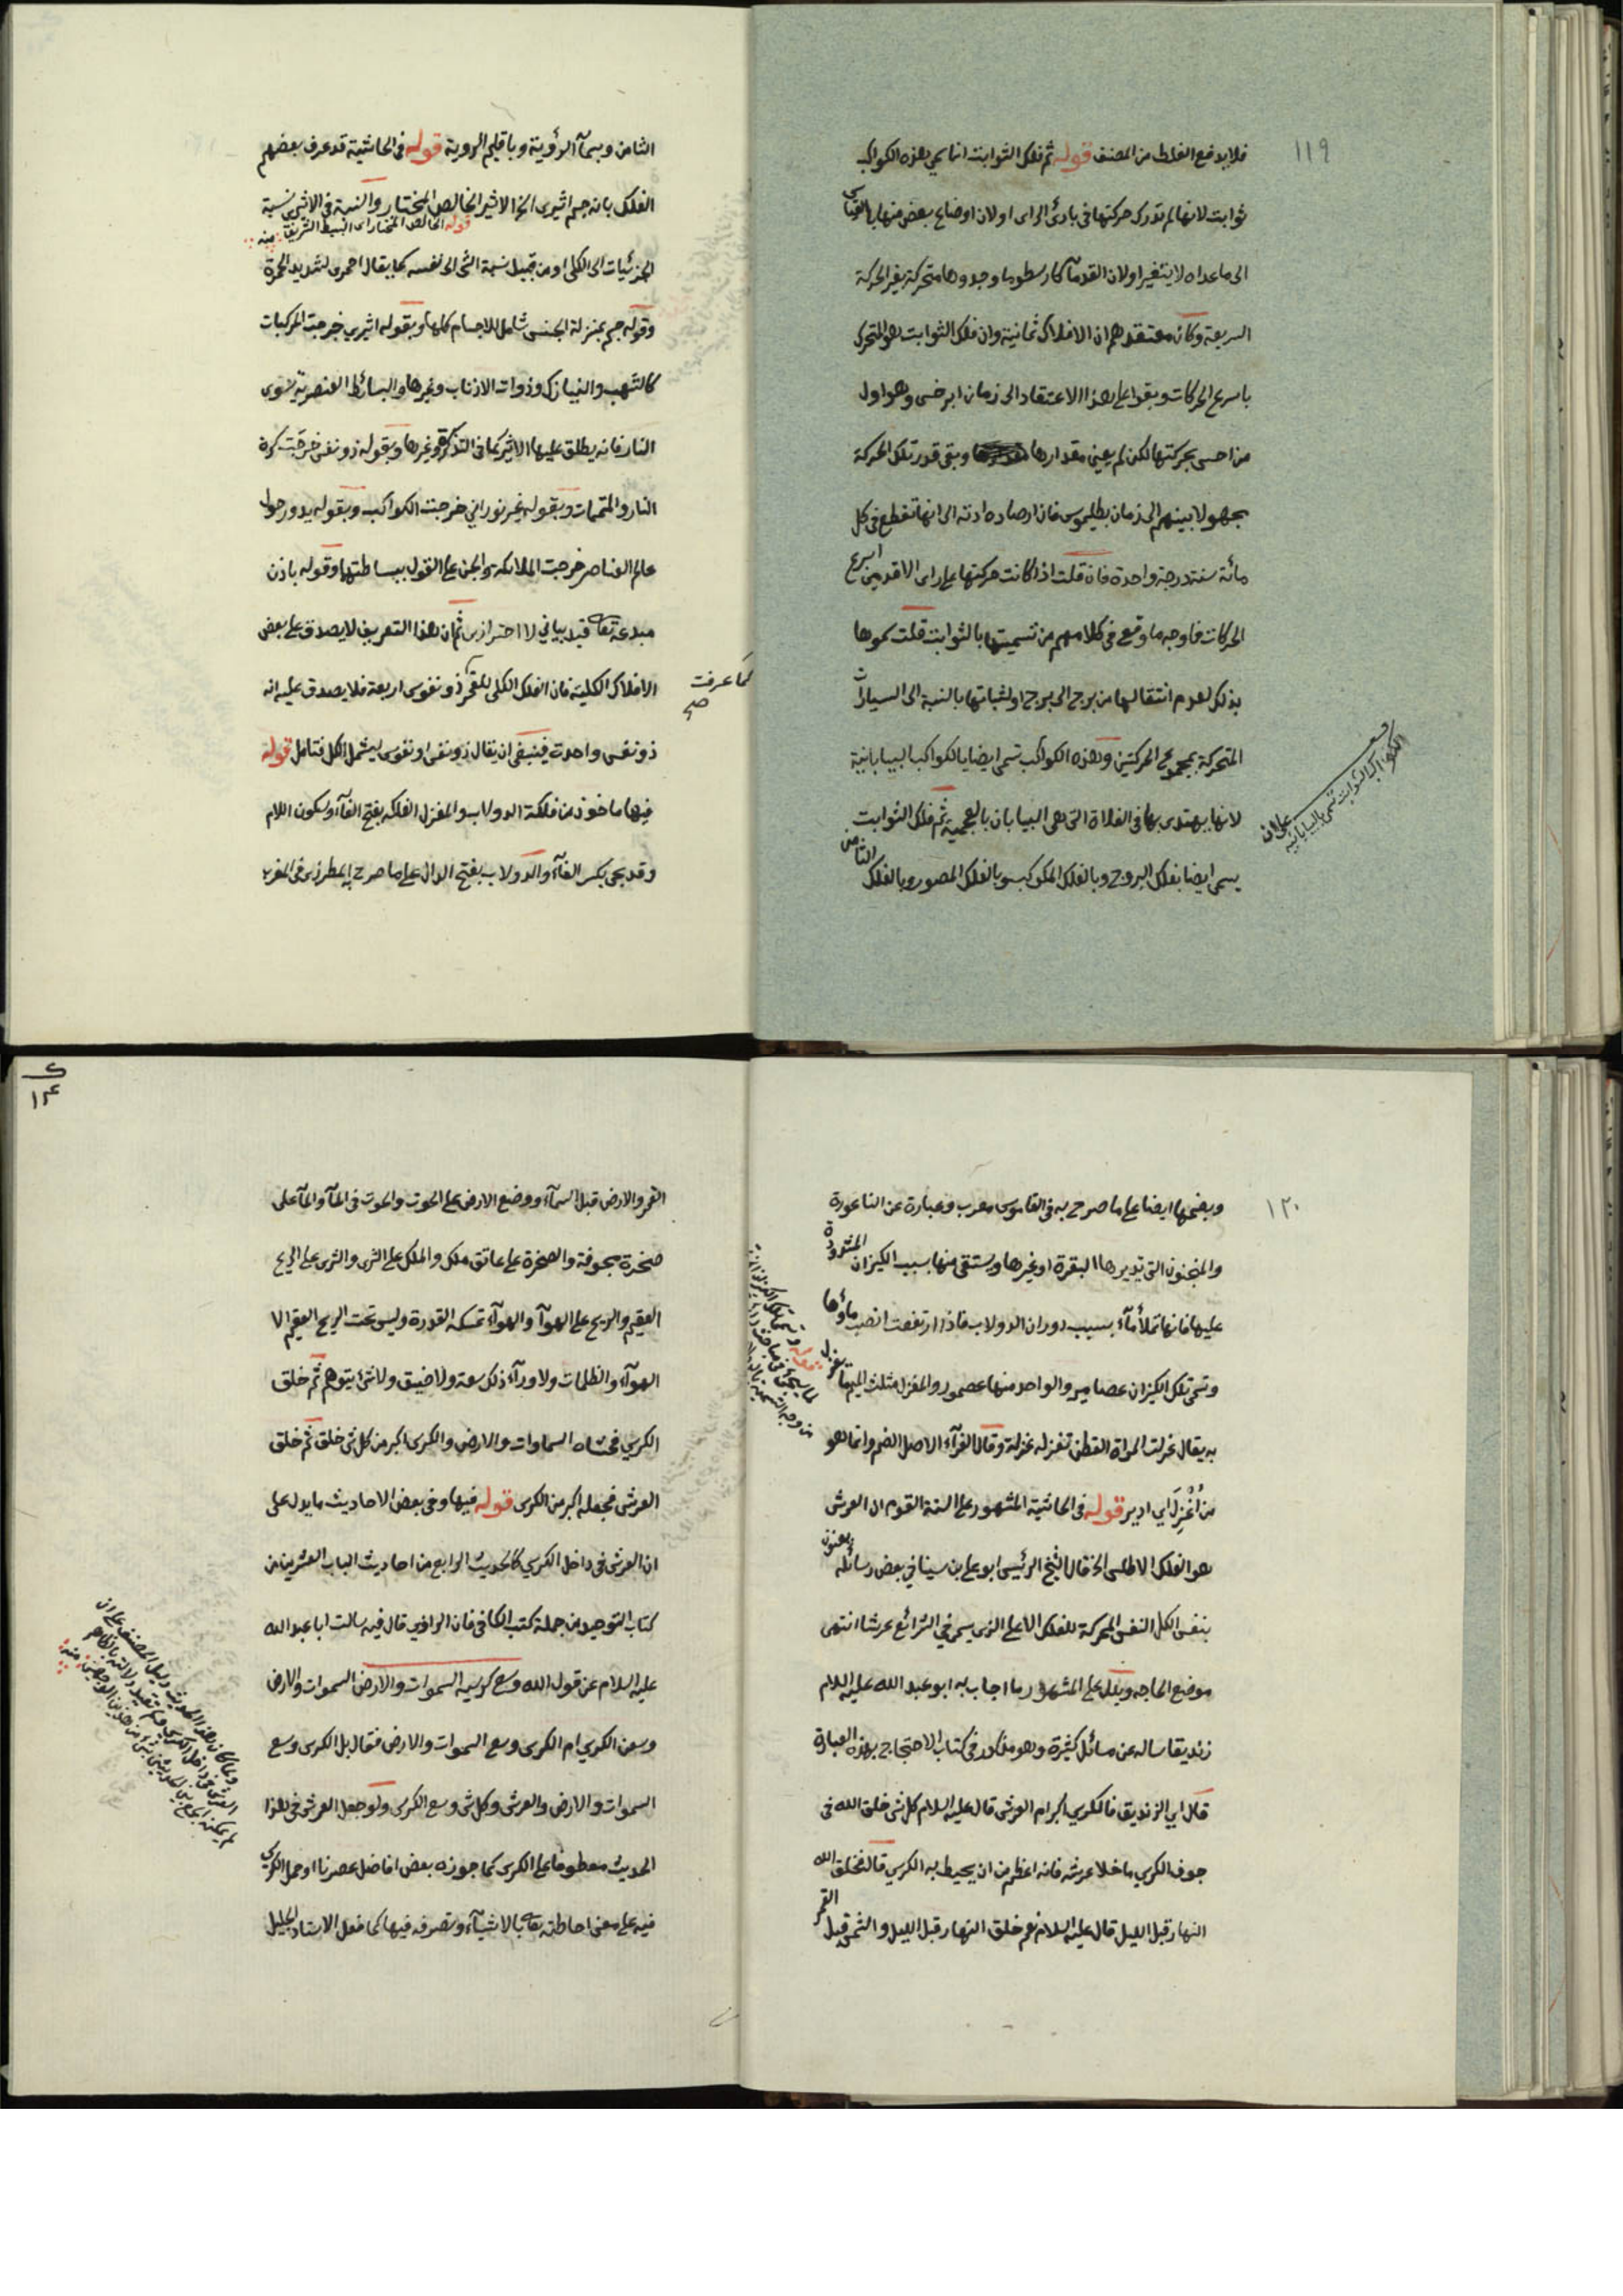 ١١٩
فلا يدفع الغلط من المصنف قوله ثم فلك الثوابت انما سمي هذه الكواكب
ثوابت لانها لم تدرك حركتها في بادئ الراى او لان اوضاع بعض منها بالقياس
الى ما عداه لا يتغير او لان القدمآ كارسطو ما وجدوها متحركة بغير الحركة
السريعة وكان معتقدهم ان الافلاك ثمانية وان فلك الثوابت هو المتحرك
باسرع الحركات وبقوا على هذا الاعتقاد الى زمان ابرخس وهو اول
من احس بحركتها لكن لم يعين مقدارها وبقى قدر تلك الحركة
مجهولا بينهم الى زمان بطليموس فان ارصاده ادته الى انها تقطع في كل
مائة سنة درجة واحدة فان قلت اذا كانت حركتها على راى الاقدمين اسرع
الحركات فما وجه ما وقع في كلامهم من تسميتها بالثوابت قلت سموها
بذلك لعدم انتقالها من برج الى برج او لثباتها بالنسبة الى السيارات
المتحركة بمجموع الحركتين وهذه الكواكب تسمى ايضا بالكواكب البيابانية
لانها يهتدى بها في الفلاة التى هى البيابان بالعجمية ثم فلك الثوابت
يسمى ايضا بفلك البروج وبالفلك المكوكب وبالفلك المصور وبالفلك الثامن
الكواكب الثوابت تسمى بالبيابانية
الثامن وبسمآ الرؤية وباقليم الروية قوله في الحاشية قد عرف بعضهم
الفلك بانه جسم اثيرى الخ الاثير الخالص المختار والنسبة في الاثيرى نسبة
قوله الخالص المختار اى البسيط الشريف منه
الجزئيات الى الكلى او من قبيل نسبة الشئ الى نفسه كما يقال احمرى لشديد الحمرة
وقوله جسم بمنزلة الجنس شامل للاجسام كلها وبقوله اثيري خرجت المركبات
كالشهب والنيازك وذوات الاذناب وغيرها والبسائط العنصرية سوى
النار فانه يطلق عليها الاثير كما في التذكرة وغيرها وبقوله ذو نفس خرجت كرة
النار والمتممات وبقوله غير نوراني خرجت الكواكب وبقوله يدور حول
عالم العناصر خرجت الملائكة والجن على القول ببساطتها وقوله باذن
مبدعه تعالى قيد بياني لا احترازى ثم ان هذا التعريف لا يصدق على بعض
الافلاك الكلية فان الفلك الكلى للقمر ذو نفوس اربعة فلا يصدق عليه انه
كما عرفت صح
ذو نفس واحدة فينبغى ان يقال ذو نفس او نفوس ليشمل الكل فتامل قوله
فيها ماخوذ من فلكة الدولاب والمغزل الفلكة بفتح الفآء وسكون اللام
وقد يجى بكسر الفآء والدولاب بفتح الدال على ما صرح به المطرزى في المغرب
١٢٠
وبضمها ايضا على ما صرح به في القاموس معرب وعبارة عن الناعورة
والمنجنون التى تديرها البقرة او غيرها ويستقى منها بسبب الكيزان المشدودة
عليها فانها تملأ مآء بسبب دوران الدولاب فاذا ارتفعت انصب ماؤها
وتسمى تلك الكيزان عصامير والواحد منها عصمور والمغزل مثلث الميم ما يغزل
به يقال غزلت المراة القطن تغزله غزلة وقال الفرآء الاصل الضم وانما هو
من أُغْزِلَ اي ادير قوله في الحاشية المشهور على السنة القوم ان العرش
هو الفلك الاطلس الخ قال الشيخ الرئيس ابو على بن سينا في بعض رسائله يعنون
بنفس الكل النفس المحركة للفلك الاعلى الذى يسمى في الشرائع عرشا انتهى
موضع الحاجة ويدل على المشهور ما اجاب به ابو عبد الله عليه السلام
زنديقا ساله عن مسائل كثيرة وهو مذكور في كتاب الاحتجاج بهذه العبارة
قال اي الزنديق فالكرسي اكبر ام العرش قال عليه السلام كل شئ خلق الله في
جوف الكرسي ما خلا عرشه فانه اعظم من ان يحيط به الكرسي قال فخلق الله
النهار قبل الليل قال عليه السلام نعم خلق النهار قبل الليل والشمس قبل القمر
١٢
القمر والارض قبل السمآء ووضع الارض على الحوت والحوت في المآ والمآ على
صخرة مجوفة والصخرة على عاتق ملك والملك على الثرى والثرى على الريح
العقيم والريح على الهوآ والهوآء تمسكه القدرة وليس تحت الريح العقيم الا
الهوآء والظلمات ولا ورآء ذلك سعة ولا ضيق ولا شئ يتوهم ثم خلق
الكرسي فحشاه السماوات والارض والكرسى اكبر من كل شئ خلق ثم خلق
العرش فجعله اكبر من الكرسى قوله فيها وفي بعض الاحاديث ما يدل على
ان العرش في داخل الكرسي كالحديث الرابع من احاديث الباب العشرين من
كتاب التوحيد من جملة كتب الكافى فان الراوي قال فيه سالت ابا عبد الله
عليه السلام عن قول الله وسع كرسيه السموات والارض السموات والارض
وسعن الكرسي ام الكرسى وسع السموات والارض فقال بل الكرسى وسع
السموات والارض والعرش وكل شئ وسع الكرسى ولو جعل العرش في هذا
الحديث معطوفا على الكرسى كما جوزه بعض افاضل عصرنا او حمل الكرسى
فيه على معنى احاطته تعالى بالاشيآء وتصرفه فيها كما فعل الاستاد الجليل